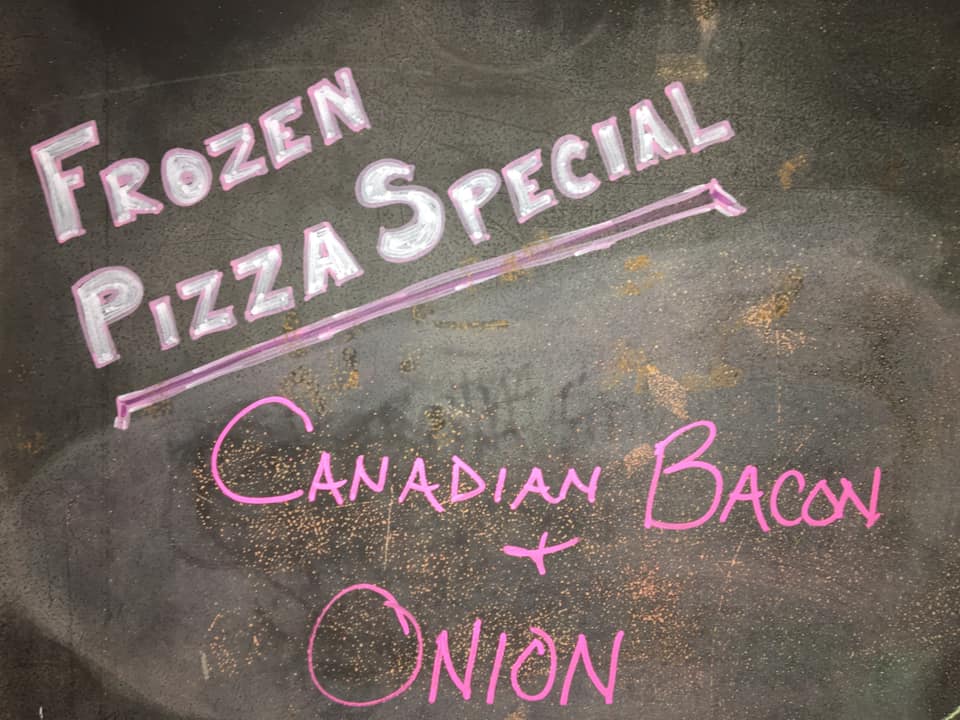 FROZEN
PIZZA SPECIAL
CANADIAN BACON
+
ONION